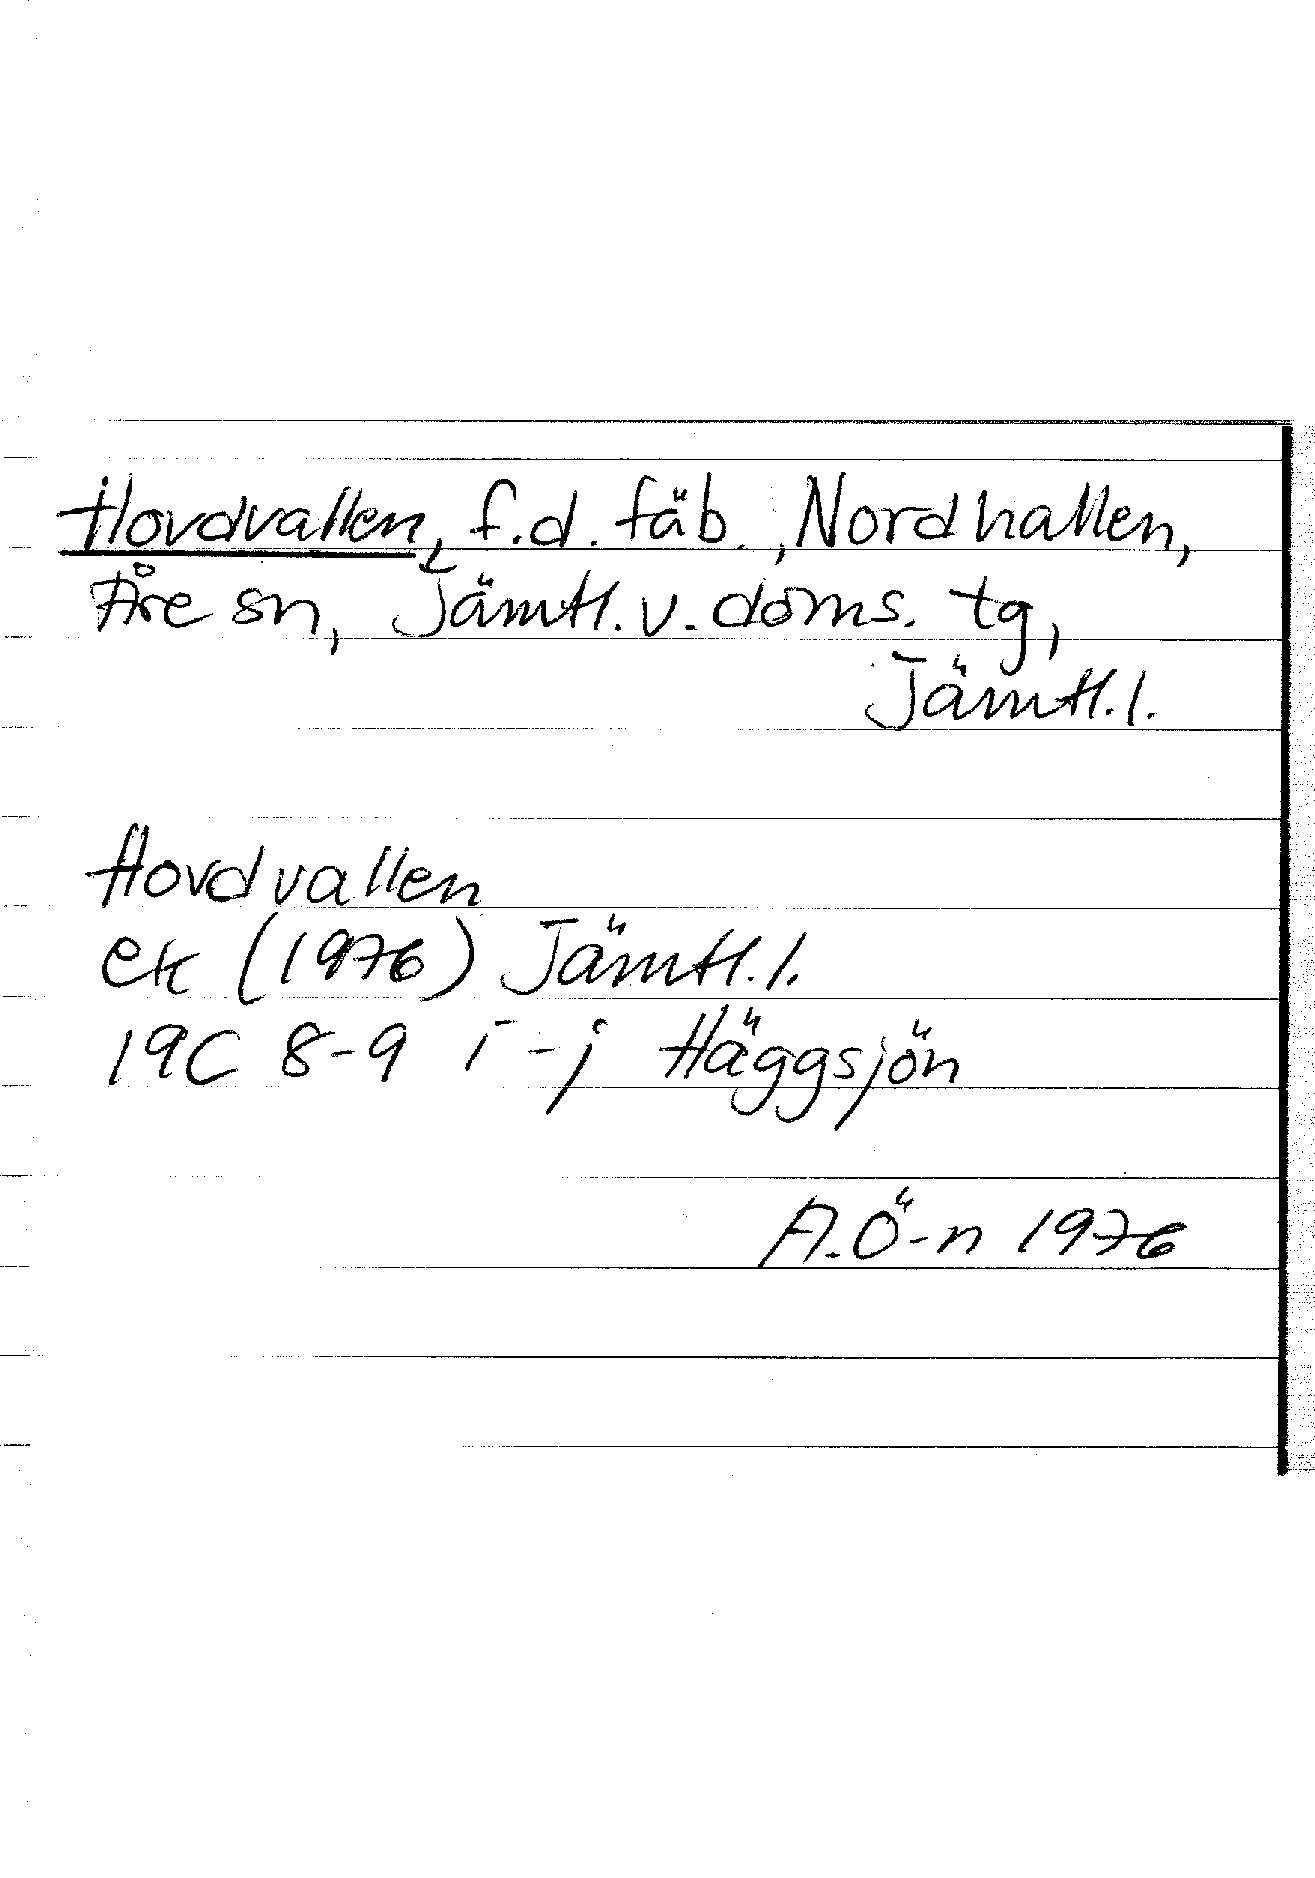 Hovdvallen, f.d. fäb., Nordhallen,
Åre sn, Jämtl. v. doms. tg,
Jämtl. l.
Hovdvallen
ek (1976) Jämtl. l.
19C 8-9 i-j Häggsjön
A. Ö-n 1976